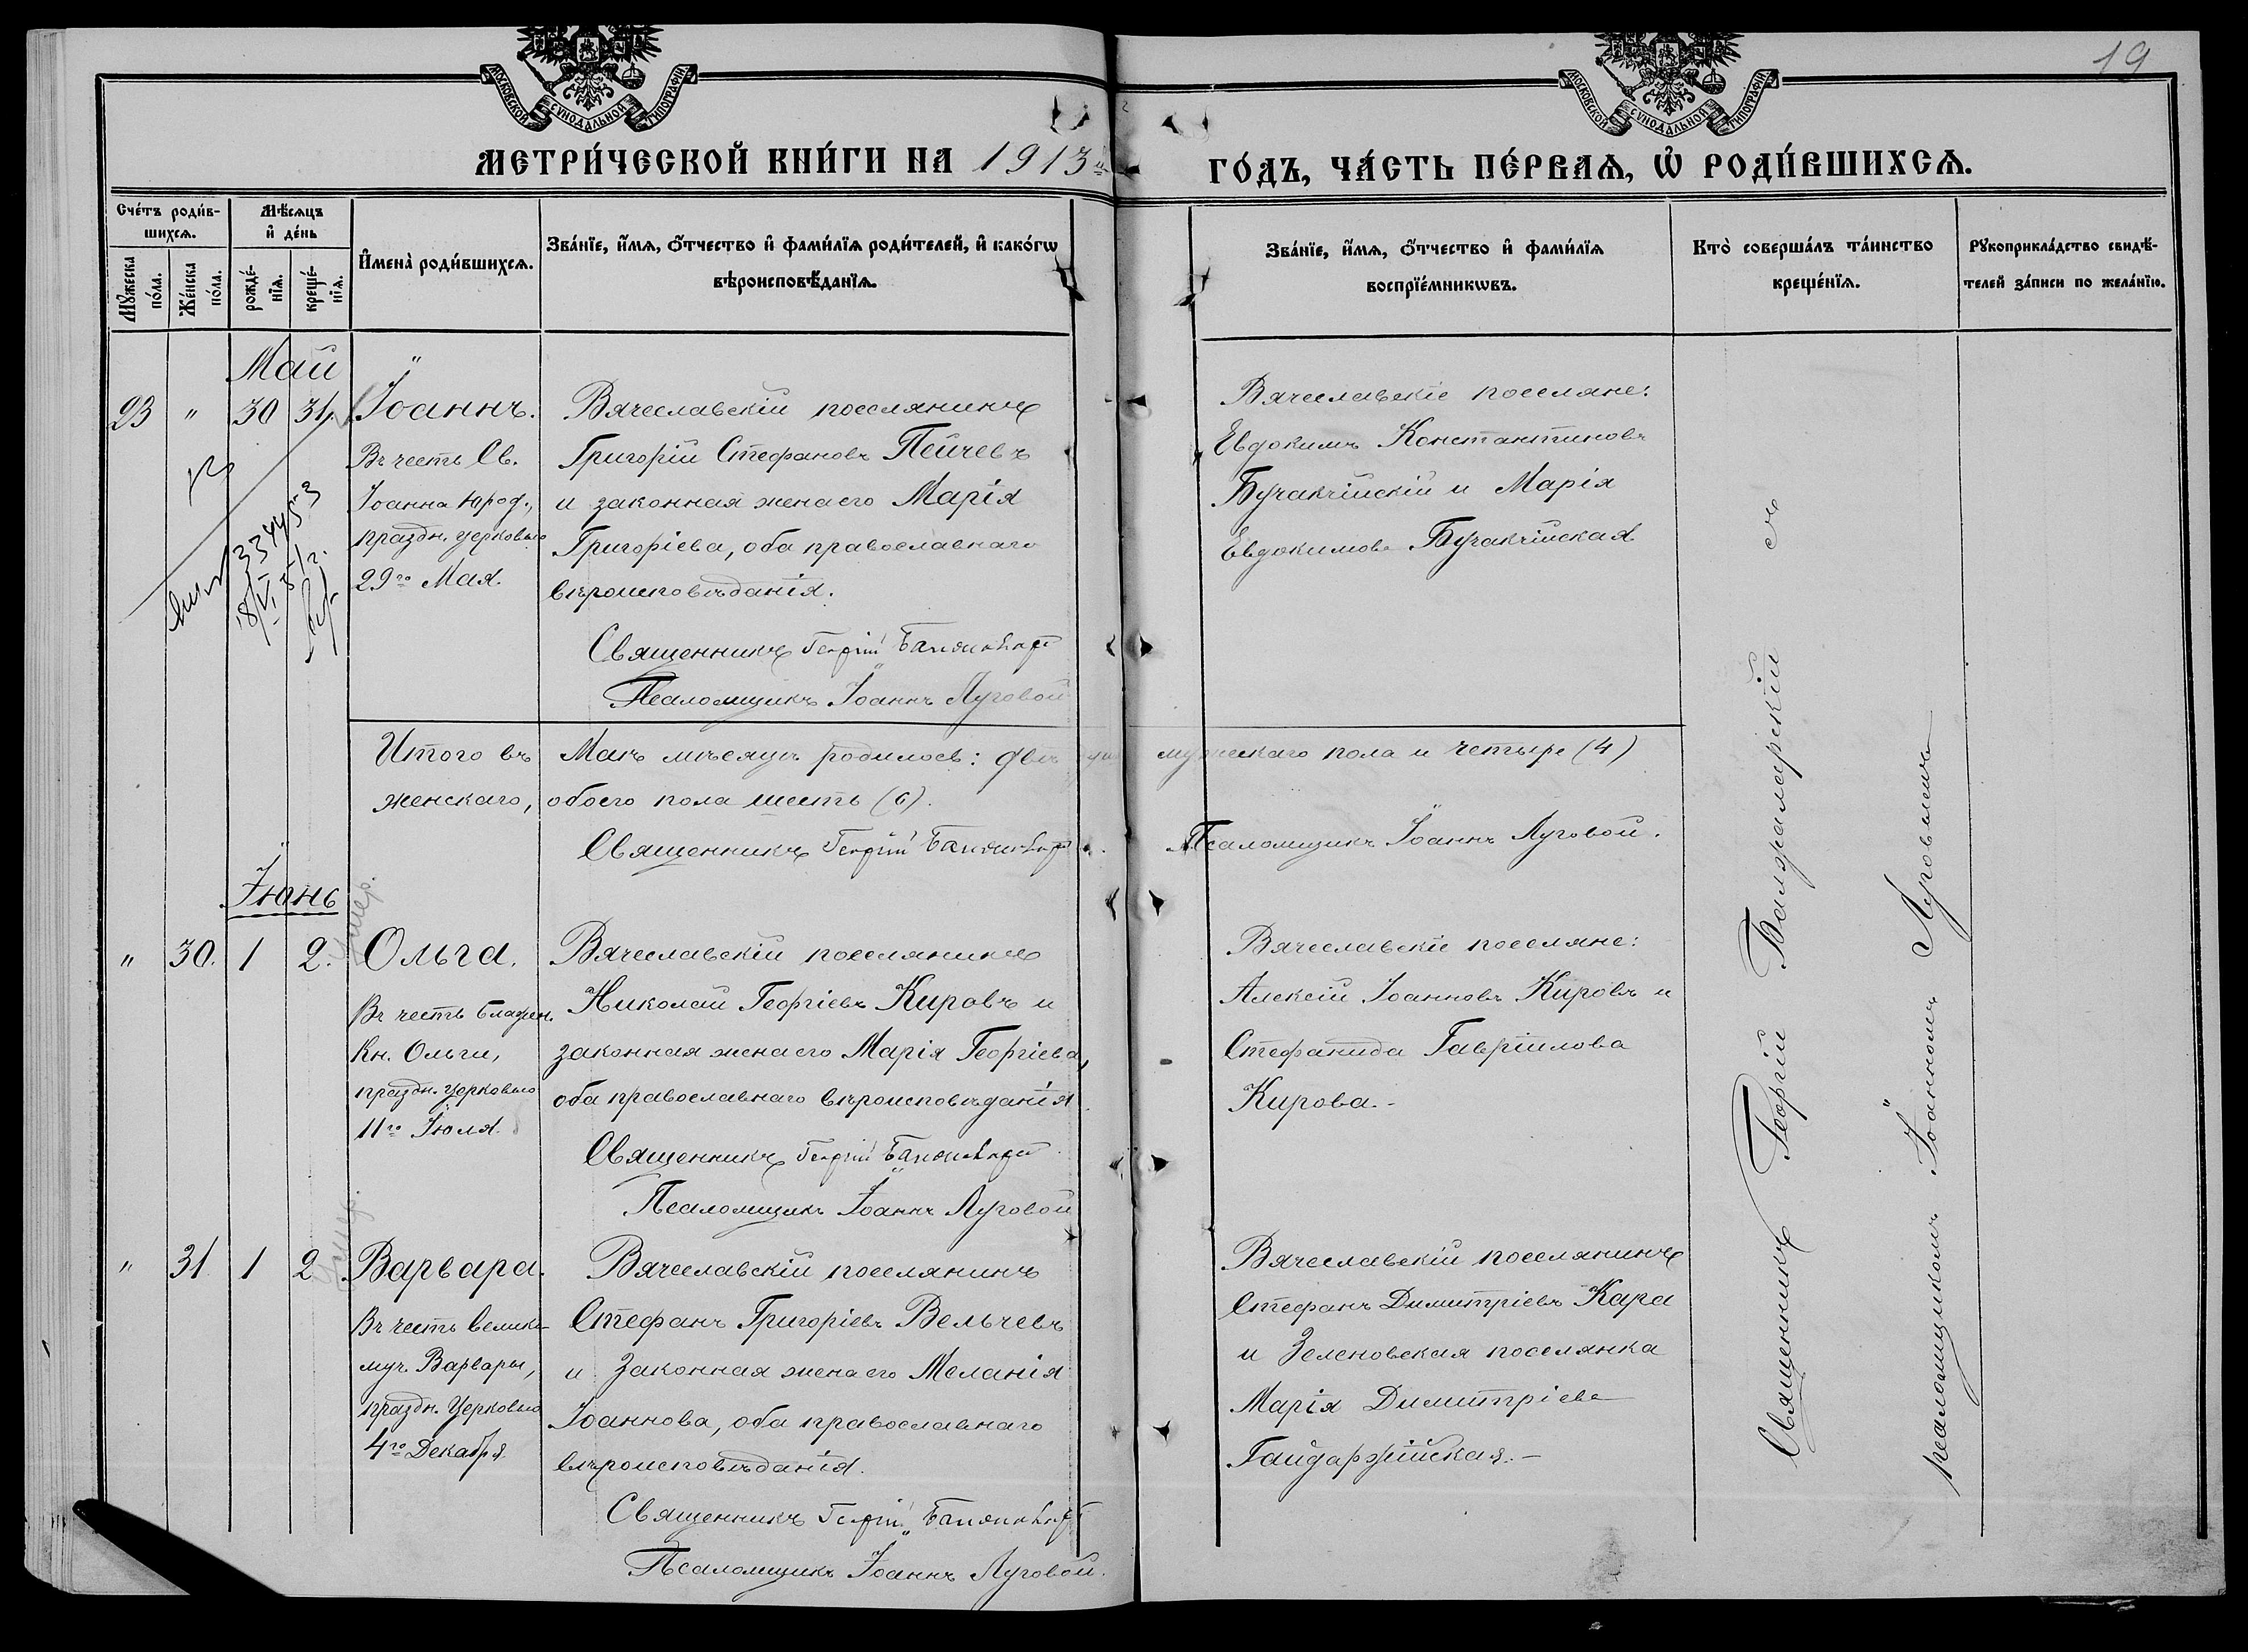 19
МОСКОВСКОЙ СУНОДАЛЬНОЙ ТИПОГРАФІИ
МОСКОВСКОЙ СУНОДАЛЬНОЙ ТИПОГРАФІИ
МЕТРИ́ЧЕСКОЙ КНИ́ГИ НА 1913й
ГО́ДЪ, ЧА́СТЬ ПЕ́РВАѦ, Ѡ҆ РОДИ́ВШИХСѦ.
Сче́тъ роди́в-
шихсѧ.
Мѣ́сѧцъ
и҆ де́нь
Мꙋ́жеска
по́ла.
Же́нска
по́ла.
рожде́-
нїѧ.
креще́-
нїѧ.
И҆мена̀ роди́вшихсѧ.
Зва́нїе, и҆́мѧ, ѻ҆́тчество и҆ фами́лїѧ роди́телей, и҆ како́гѡ
вѣроисповѣ́данїѧ.
Зва́нїе, и҆́мѧ, ѻ҆́тчество и҆ фами́лїѧ
воспрїе́мникѡвъ.
Кто̀ соверша́лъ та́инство
креще́нїѧ.
Рꙋкоприкла́дство свидѣ́-
телей за́писи по жела́нїю.
Май
23 " 30 31. Іоаннъ.
Въ честь Св.
Іоанна Юрод.,
праздн. церковью
29го Мая.
Вячеславскій поселянинъ
Григорій Стефановъ Пейчевъ
и законная жена его Марія
Григоріева, оба православнаго
вѣроисповѣданія.
Священникъ Георгій
Псаломщикъ Іоаннъ Луговой
Вячеславскіе поселяне:
Евдокимъ Константиновъ
Бучакчійскій и Марія
Евдокимова Бучакчійская
334453
18/VI 51г.
Итого въ Маѣ мѣсяцѣ родилось: два мужескаго пола и четыре (4)
женскаго, обоего пола шесть (6).
Священникъ Георгій
Псаломщикъ Іоаннъ Луговой.
Іюнь
" 30. 1 2. Ольга.
Въ честь блажен.
Кн. Ольги,
праздн. церковью
11го Іюля.
Вячеславскій поселянинъ
Николай Георгіевъ Кировъ и
законная жена его Марія Георгіева,
оба православнаго вѣроисповѣданія
Священникъ Георгій
Псаломщикъ Іоаннъ Луговой
Вячеславскіе поселяне:
Алексій Іоанновъ Кировъ и
Стефанида Гавріилова
Кирова.-
" 31 1 2 Варвара.
Въ честь велико-
муч. Варвары,
праздн. Церковью
4го Декабря.
Вячеславскій поселянинъ
Стефанъ Григоріевъ Вельчевъ
и законная жена его Меланія
Іоаннова, оба православнаго
вѣроисповѣданія.
Священникъ Георгій
Псаломщикъ Іоаннъ Луговой.
Вячеславскій поселянинъ
Стефанъ Димитріевъ Кара
и Зеленовская поселянка
Марія Димитріева
Гайдаржійская.-
Священникъ Георгій съ
псаломщикомъ Іоанномъ Луговымъ